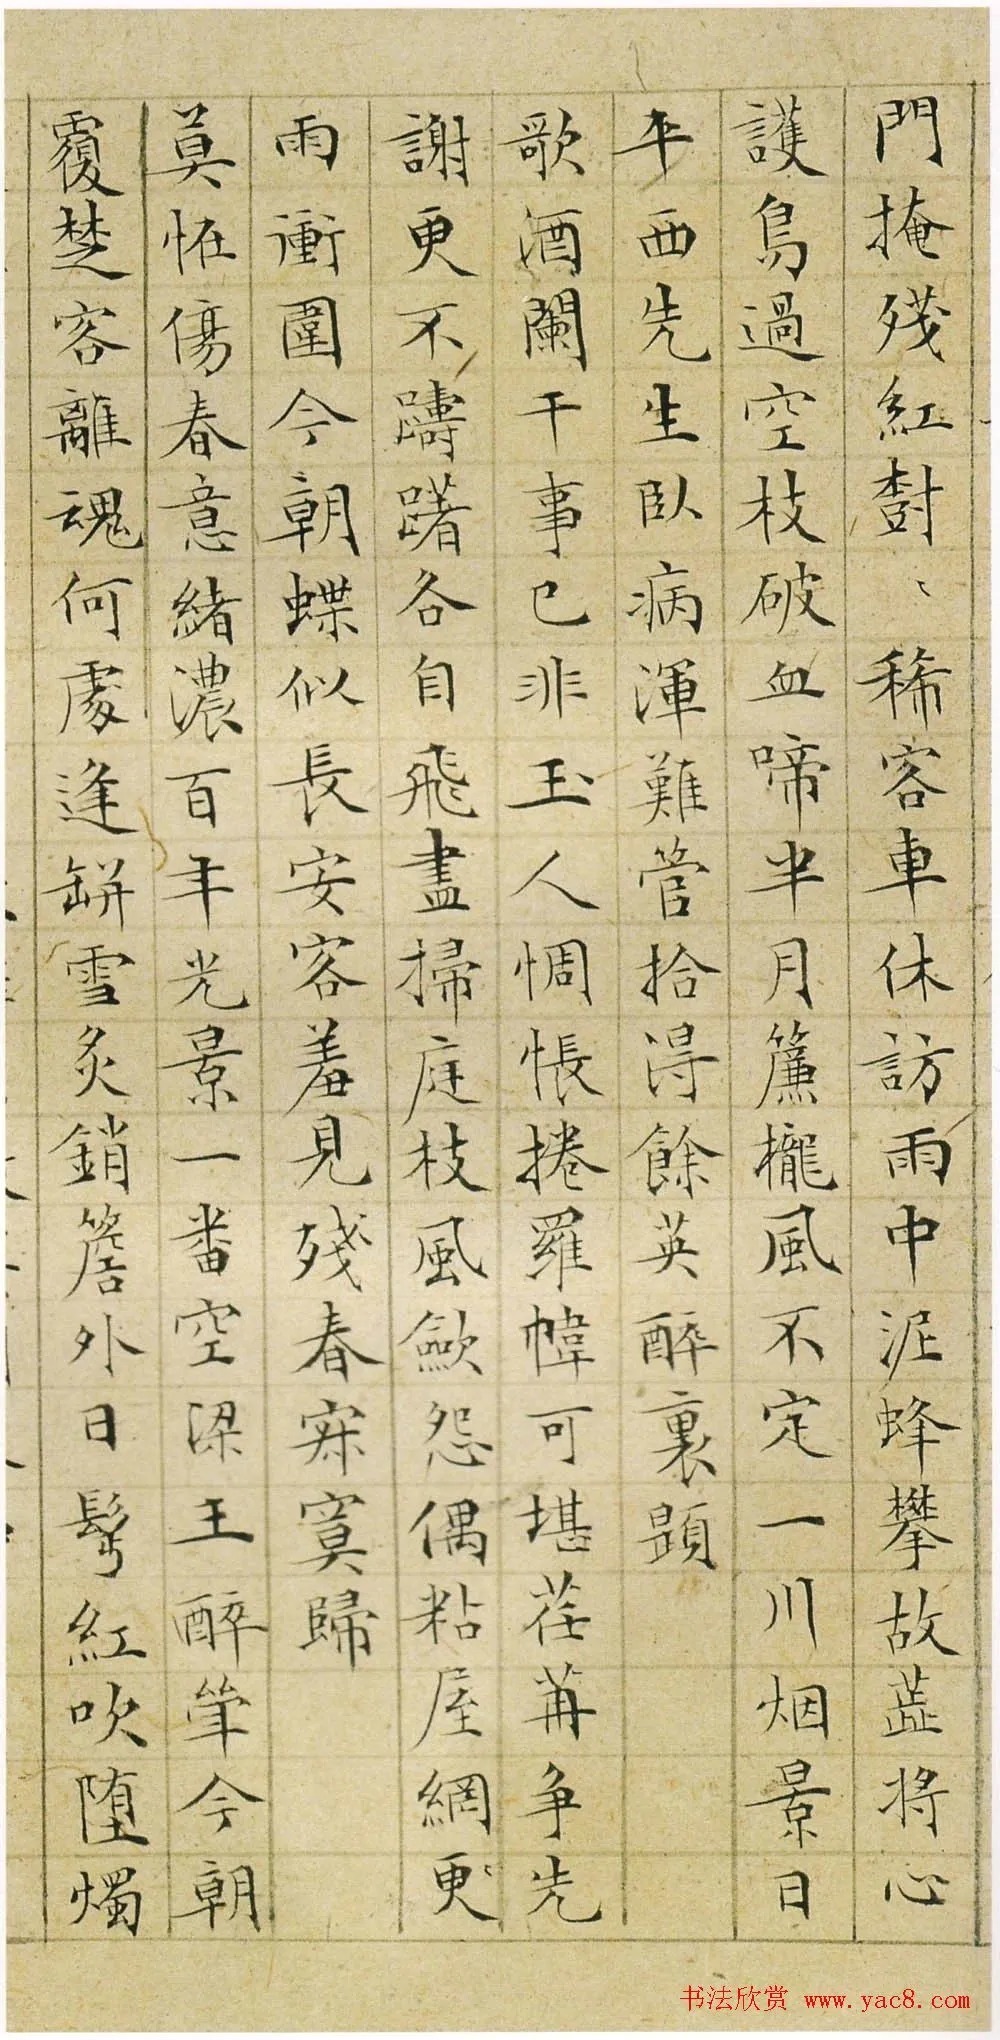 門掩殘紅樹〻稀客車休訪雨中泥蜂攀故蕋將心
護鳥過空枝破血啼半月簾櫳風不定一川烟景日
平西先生臥病渾難管拾得餘英醉裏題
歌酒闌干事已非玉人惆悵捲羅幃可堪荏苒爭先
謝更不躊躇各自飛盡掃庭枝風歛怨偶粘屋網更〻
雨衝圍今朝蝶似長安客羞見殘春寂寞歸
莫恠傷春意緒濃百年光景一番空梁王醉筆今朝
覆楚客離魂何處逢缾雪炙銷簷外日髩紅吹墮燭
书法欣赏 www.yac8.com